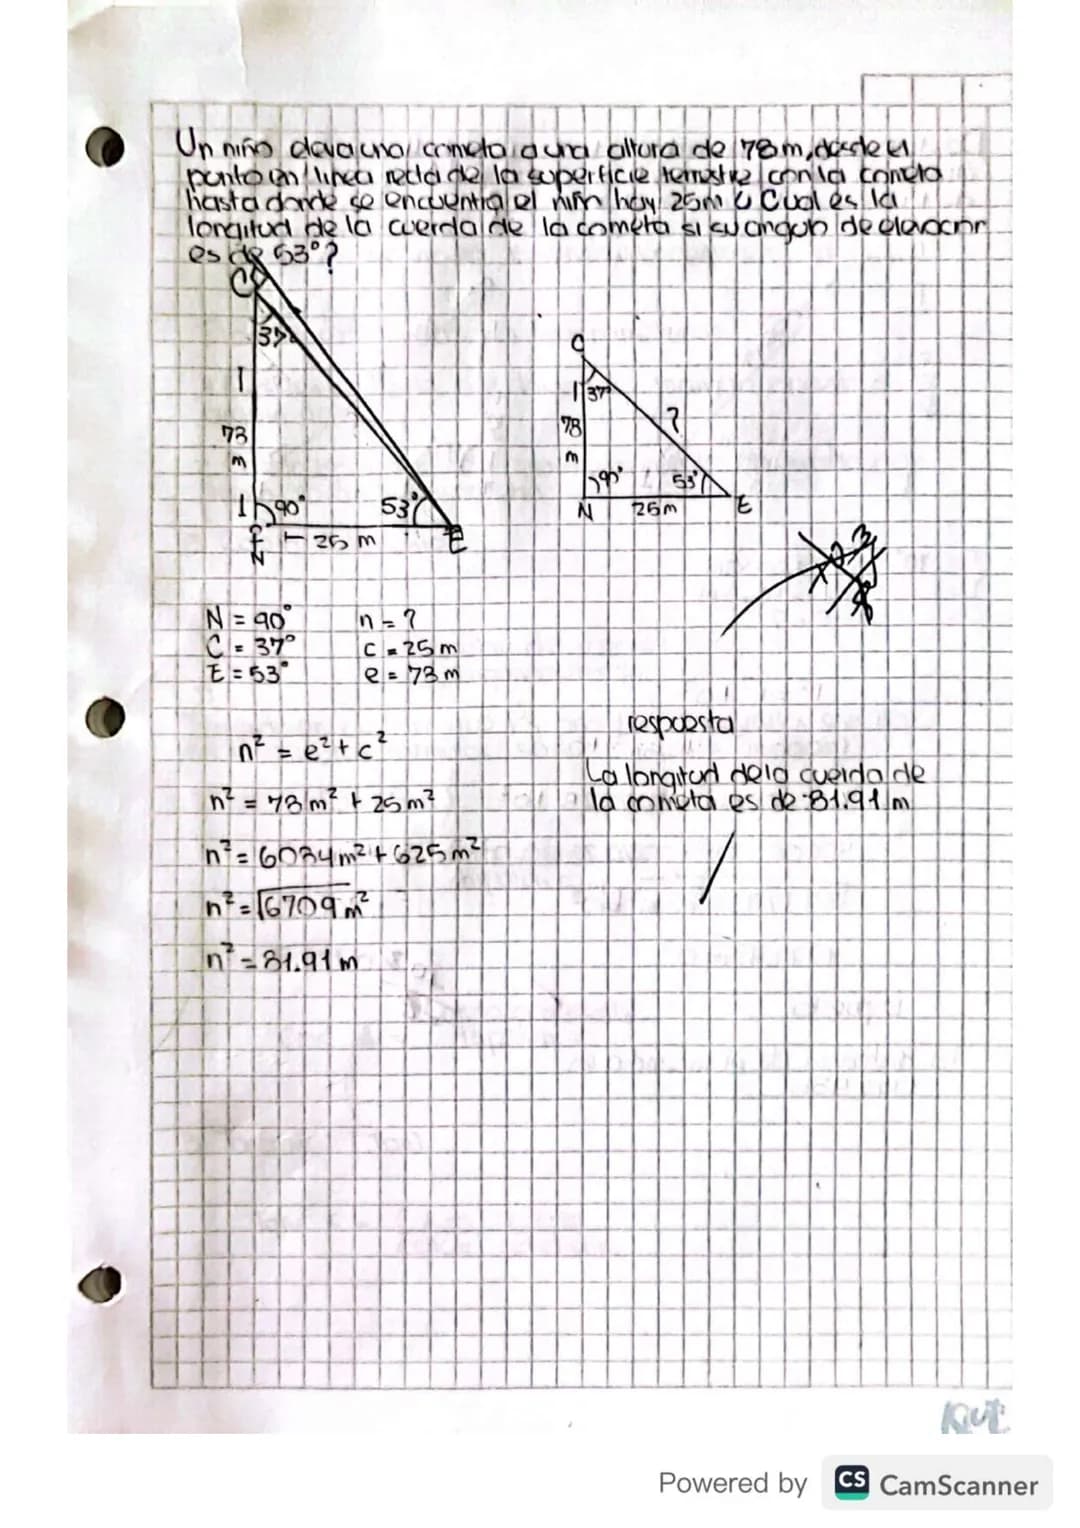 Un niño eleva una cometa a una altura de 78m, desde el
punto en linea recta de la superficie terrestre con la cometa
hasta donde se encuentra el niño hay 25m ¿Cual es la
longitud de la cuerda de la cometa si su angulo de elevacion
es de 53°?
C
37
78
m
90° 53°
N 25 m E
C
37°
78 ?
m
90° 53°
N 25m E
N = 90° n = ?
C = 37° c = 25 m
E = 53° e = 78 m
n² = e² + c²
n² = 78 m² + 25 m²
n² = 6084 m² + 625 m²
n² = √6709 m²
n² = 81.91 m
respuesta
La longitud de la cuerda de
la cometa es de 81.91 m
Powered by CS CamScanner